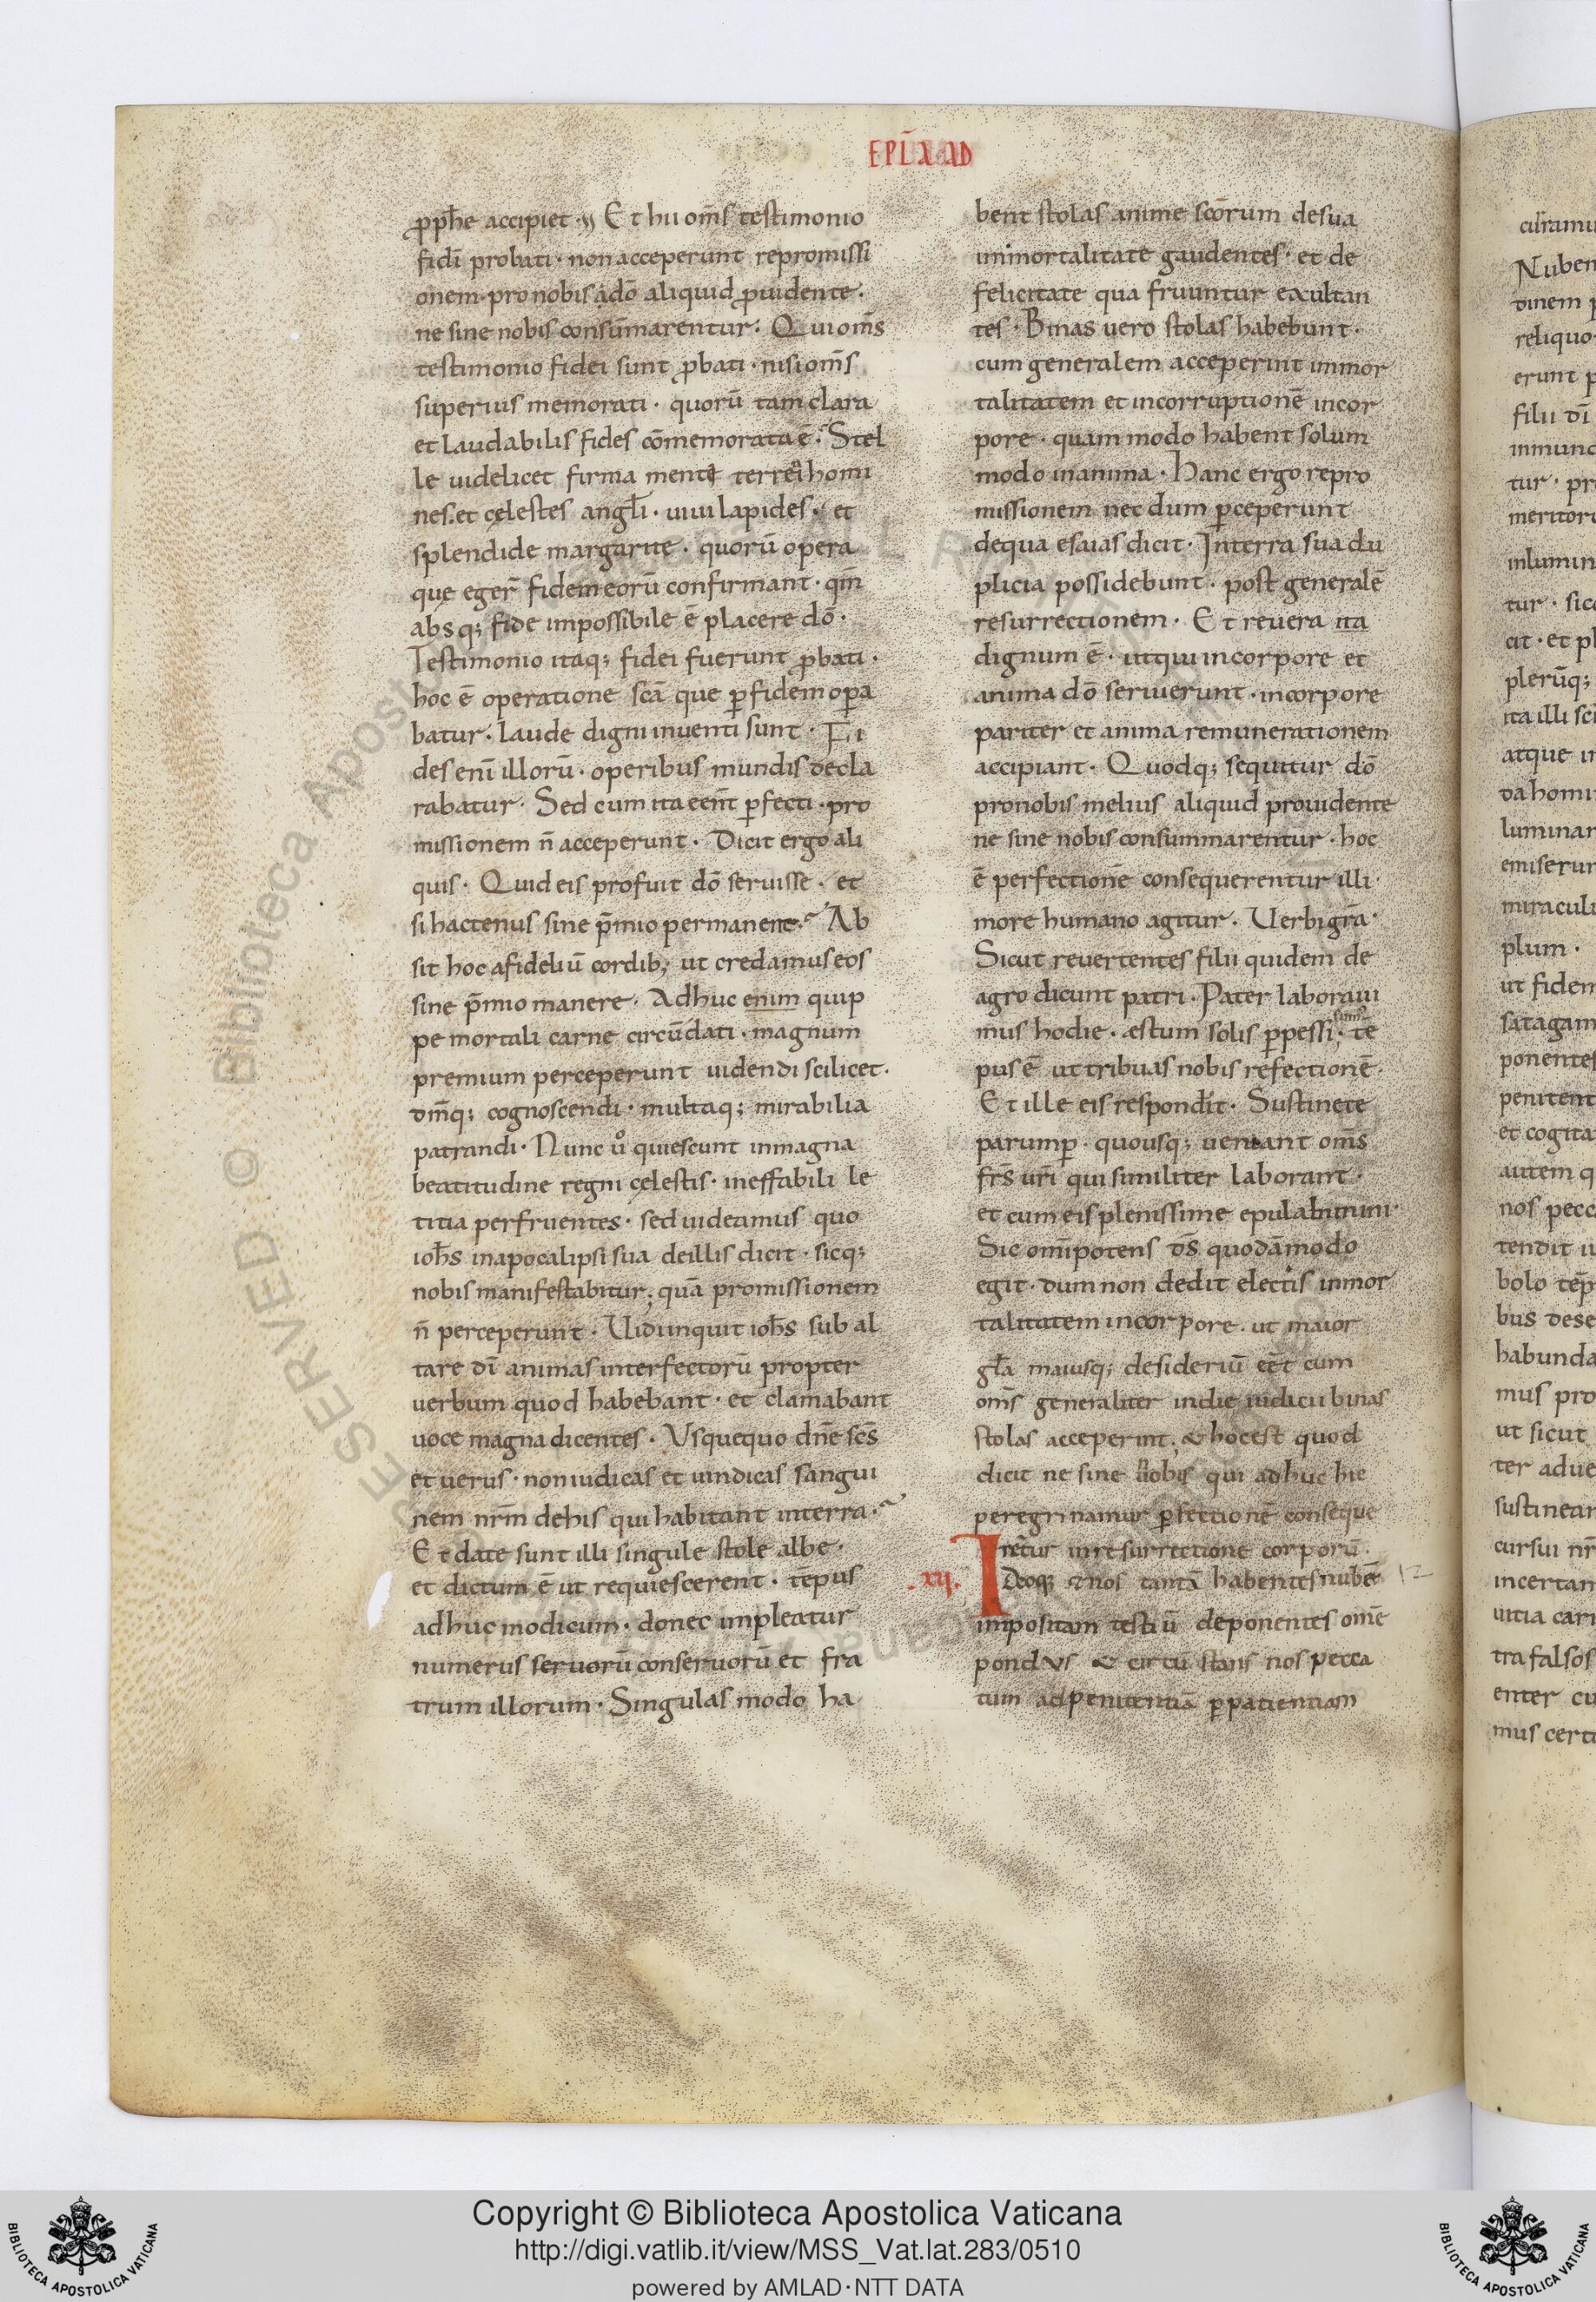 EPL̄A AD
ꝓph̄e accipiet · Et hii om̄s testimonio
fidei probati · non acceperunt repromissi
onem · pro nobis a dō aliquid ꝓuidente ·
ne sine nobis consūmarentur · Qui om̄s
testimonio fidei sunt ꝓbati · nisi om̄s
superius memorati · quorū tam clara
et laudabilis fides cōmemorata ē · Stel
le uidelicet firma mente terrei homi
nes · et cęlestes angl̄i · uiui lapides · et
splendide margarite · quorū opera
quę eger̄ fidem eorū confirmant · qm̄
absq; fide impossibile ē placere dō ·
Testimonio itaq; fidei fuerunt ꝓbati ·
hoc ē operatione scā que ꝑ fidem oꝑa
batur · laude digni inuenti sunt · Fi
des eni illorū · operibus mundis decla
rabatur · Sed cum ita eēnt ꝑfecti · pro
missionem n̄ acceperunt · Dicit ergo ali
quis · Quid eis profuit dō seruisse · et
si hactenus sine p̄mio permanent · Ab
sit hoc a fideliū cordib; ut credamus eos
sine p̄mio manere · Adhuc enim quip
pe mortali carne circūdati · magnum
premium perceperunt uidendi scilicet ·
dm̄q; cognoscendi · multaq; mirabilia
patrandi · Nunc uͦ quiescunt in magna
beatitudine regni cęlestis · ineffabili le
titia perfruentes · sed uideamus quo
ioh̄s in apocalipsi sua de illis dicit · sicq;
nobis manifestabitur; quā promissionem
n̄ perceperunt · Uidi inquit ioh̄s sub al
tare dī animas interfectorū propter
uerbum quod habebant · et clamabant
uoce magna dicentes · Usquequo dn̄e scs̄
et uerus · non iudicas et uindicas sangui
nem nr̄m de his qui habitant in terra ·
Et date sunt illi singule stole albe ·
et dictum ē ut requiescerent · tēpus
adhuc modicum · donec impleatur
numerus seruorū conseruorū et fra
trum illorum · Singulas modo ha
bent stolas anime scōrum de sua
inmortalitate gaudentes · et de
felicitate qua fruuntur exultan
tes · Binas uero stolas habebunt ·
cum generalem acceperint inmor
talitatem et incorruptionē in cor
pore · quam modo habent solum
modo in anima · Hanc ergo repro
missionem nec dum ꝑceperunt
de qua esaias dicit · In terra sua du
plicia possidebunt · post generalē
resurrectionem · Et reuera ita
dignum ē · ut qui in corpore et
anima dō seruierunt · in corpore
pariter et anima remunerationem
accipiant · Quodq; sequitur dō
pro nobis melius aliquid prouidente
ne sine nobis consummarentur · hoc
ē perfectionē consequerentur illi ·
more humano agitur · Uerbi gr̄a ·
Sicut reuertentes filii quidem de
agro dicunt patri · Pater laboraui
mus hodie · æstum solis ꝑpessi sum; te
pus ē ut tribuas nobis refectionē ·
Et ille eis respondit · Sustinete
parumꝑ · quousq; ueniant om̄s
frs̄ ur̄i qui similiter laborant ·
et cum eis plenissime epulabimini ·
Sic omīpotens ds̄ quodāmodo
egit · dum non dedit electis inmor
talitatem in corpore · ut maior
gl̄a maiusq; desideriū eēt cum
om̄s generaliter in die iudicii binas
stolas acceperint; & hoc est quod
dicit ne sine nobis qui adhuc hic
peregrinamur ꝑfectionē conseque
rētur in resurrectione corporū ·
· xij · Ideoq; & nos tantā habentes nubē 12
impositam testiū deponentes om̄e
pondus & circū stans nos pecca
tum ad penitentiā ꝑ patientiam
Copyright © Biblioteca Apostolica Vaticana
http://digi.vatlib.it/view/MSS_Vat.lat.283/0510
powered by AMLAD·NTT DATA
BIBLIOTECA APOSTOLICA VATICANA
BIBLIOTECA APOSTOLICA VATICANA